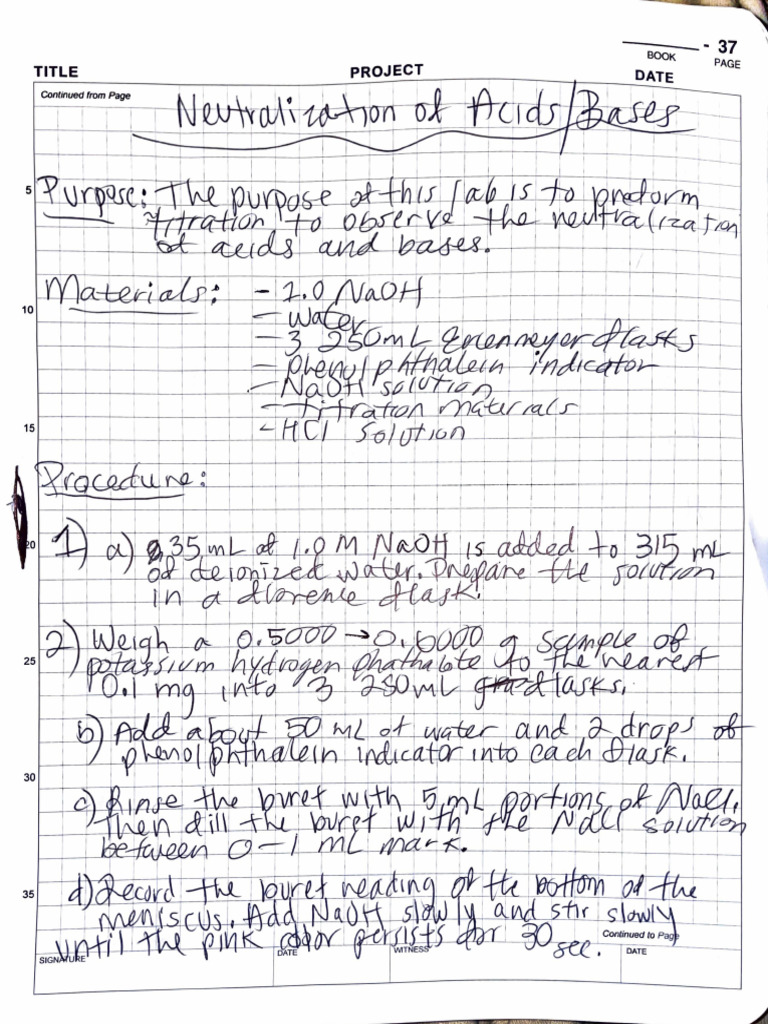 - 37
BOOK PAGE
TITLE PROJECT DATE
Continued from Page
Neutralization of Acids/Bases
5
Purpose: The purpose of this lab is to preform
titration to observe the neutralization
of acids and bases.
Materials: - 1.0 NaOH
10
- Water
- 3 250mL Erlenmeyer flasks
- phenolphthalein indicator
- NaOH solution
- titration materials
15
- HCl solution
Procedure:
20
1) a) 35 mL of 1.0 M NaOH is added to 315 mL
of deionized water. Prepare the solution
in a florence flask.
2) Weigh a 0.5000 → 0.6000 g sample of
25
potassium hydrogen phathalate to the nearest
0.1 mg into 3 250mL flasks.
b) Add about 50 mL of water and 2 drops of
phenolphthalein indicator into each flask.
30
c) Rinse the buret with 5 mL portions of NaCl.
Then fill the buret with the NaCl solution
between 0-1 mL mark.
35
d) Record the buret reading of the bottom of the
meniscus. Add NaOH slowly and stir slowly
until the pink color persists for 30 sec.
Continued to Page
SIGNATURE DATE WITNESS DATE